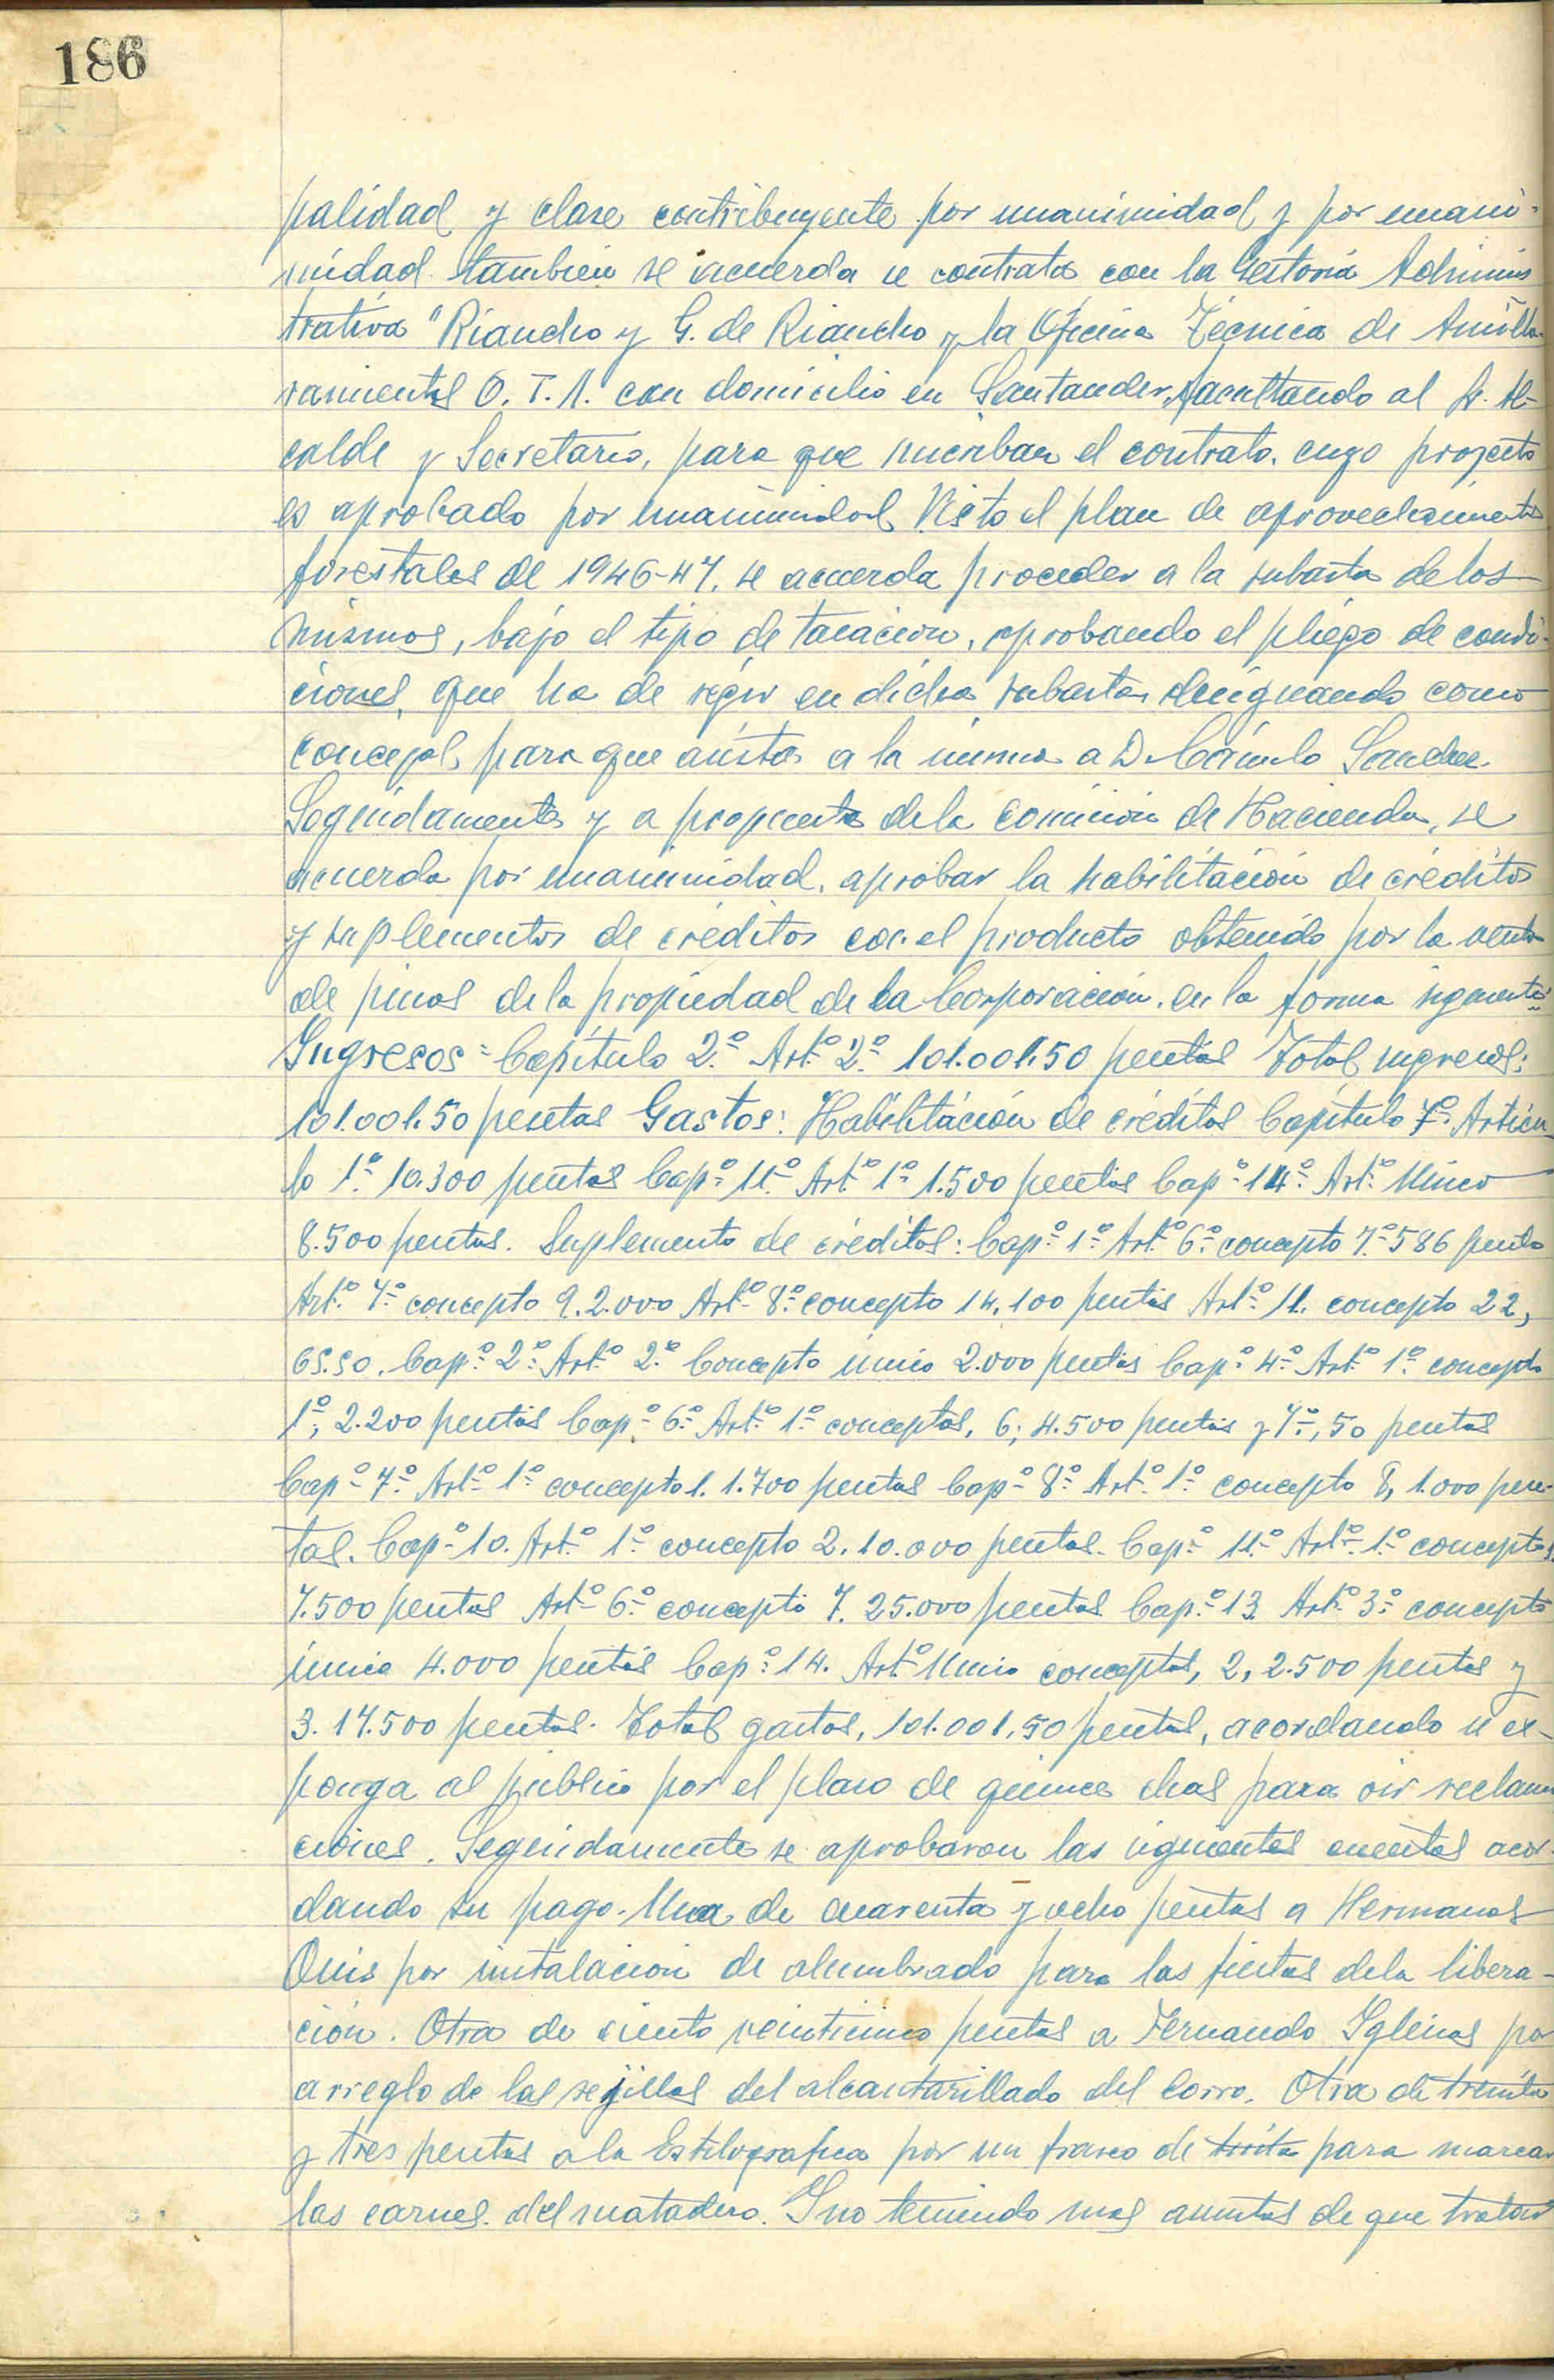 186
palidad y clase contribuyente por unanimidad y por unani-
midad tambien se acuerda se contrate con la Gestoria Adminis
trativa "Riancho y G. de Riancho y la Oficina Técnica de Amilla-
ramientos O.T.A. con domicilio en Santander, facultando al Sr. Al-
calde y Secretario, para que suscriban el contrato, cuyo proyecto
es aprobado por unanimidad Visto el plan de aprovechamientos
forestales de 1946-47, se acuerda proceder a la subasta de los
mismos, bajo el tipo de tasacion, aprobando el pliego de condi-
ciones, que ha de regir en dicha subasta, designando como
concejal, para que asista a la misma a D. Cámilo Sanchez.
Seguidamente y a propuesta de la comision de Hacienda, se
acuerda por unanimidad, aprobar la habilitación de creditos
y suplementos de créditos con el producto obtenido por la venta
de pinos de la propiedad de la Corporacion, en la forma siguiente:
Ingresos= Capitulo 2.º Art.º 2.º 101.001,50 pesetas Total ingresos:
101.001,50 pesetas Gastos: Habilitación de créditos Capitulo 7.º Articu-
lo 1.º 10.300 pesetas Cap.º 11.º Art.º 1.º 1.500 pesetas Cap.º 14.º Art.º Unico
8.500 pesetas. Suplemento de créditos: Cap.º 1.º Art.º 6.º concepto 7.º 586 pesetas
Art.º 7.º concepto 9. 2.000 Art.º 8.º concepto 14, 100 pesetas Art.º 11. concepto 22,
65.50. Cap.º 2.º Art.º 2.º Concepto unico 2.000 pesetas Cap.º 4.º Art.º 1.º concepto
1.º, 2.200 pesetas Cap.º 6.º Art.º 1.º conceptos, 6; 4.500 pesetas y 7.º, 50 pesetas
Cap.º 7.º Art.º 1.º concepto 1. 1.700 pesetas Cap.º 8.º Art.º 1.º concepto 8, 1.000 pese-
tas. Cap.º 10. Art.º 1.º concepto 2. 10.000 pesetas. Cap.º 11.º Art.º 1.º concepto 1.
7.500 pesetas Art.º 6.º concepto 7. 25.000 pesetas. Cap.º 13. Art.º 3.º concepto
unico 4.000 pesetas Cap.º 14. Art.º Unico conceptos, 2, 2.500 pesetas y
3. 17.500 pesetas. Total gastos, 101.001,50 pesetas, acordando se ex-
ponga al publico por el plazo de quince dias para oir reclama
ciones. Seguidamente se aprobaron las siguientes cuentas acor-
dando su pago. Una de cuarenta y ocho pesetas a Hermanos
Quis por instalacion de alumbrado para las fiestas de la libera-
ción. Otra de ciento veinticinco pesetas a Fernando Iglesias por
arreglo de las rejillas del alcantarillado del Corro. Otra de treinta
y tres pesetas a la Estilografica por un frasco de tinta para marcar
las carnes del matadero. Y no teniendo mas asuntos de que tratar